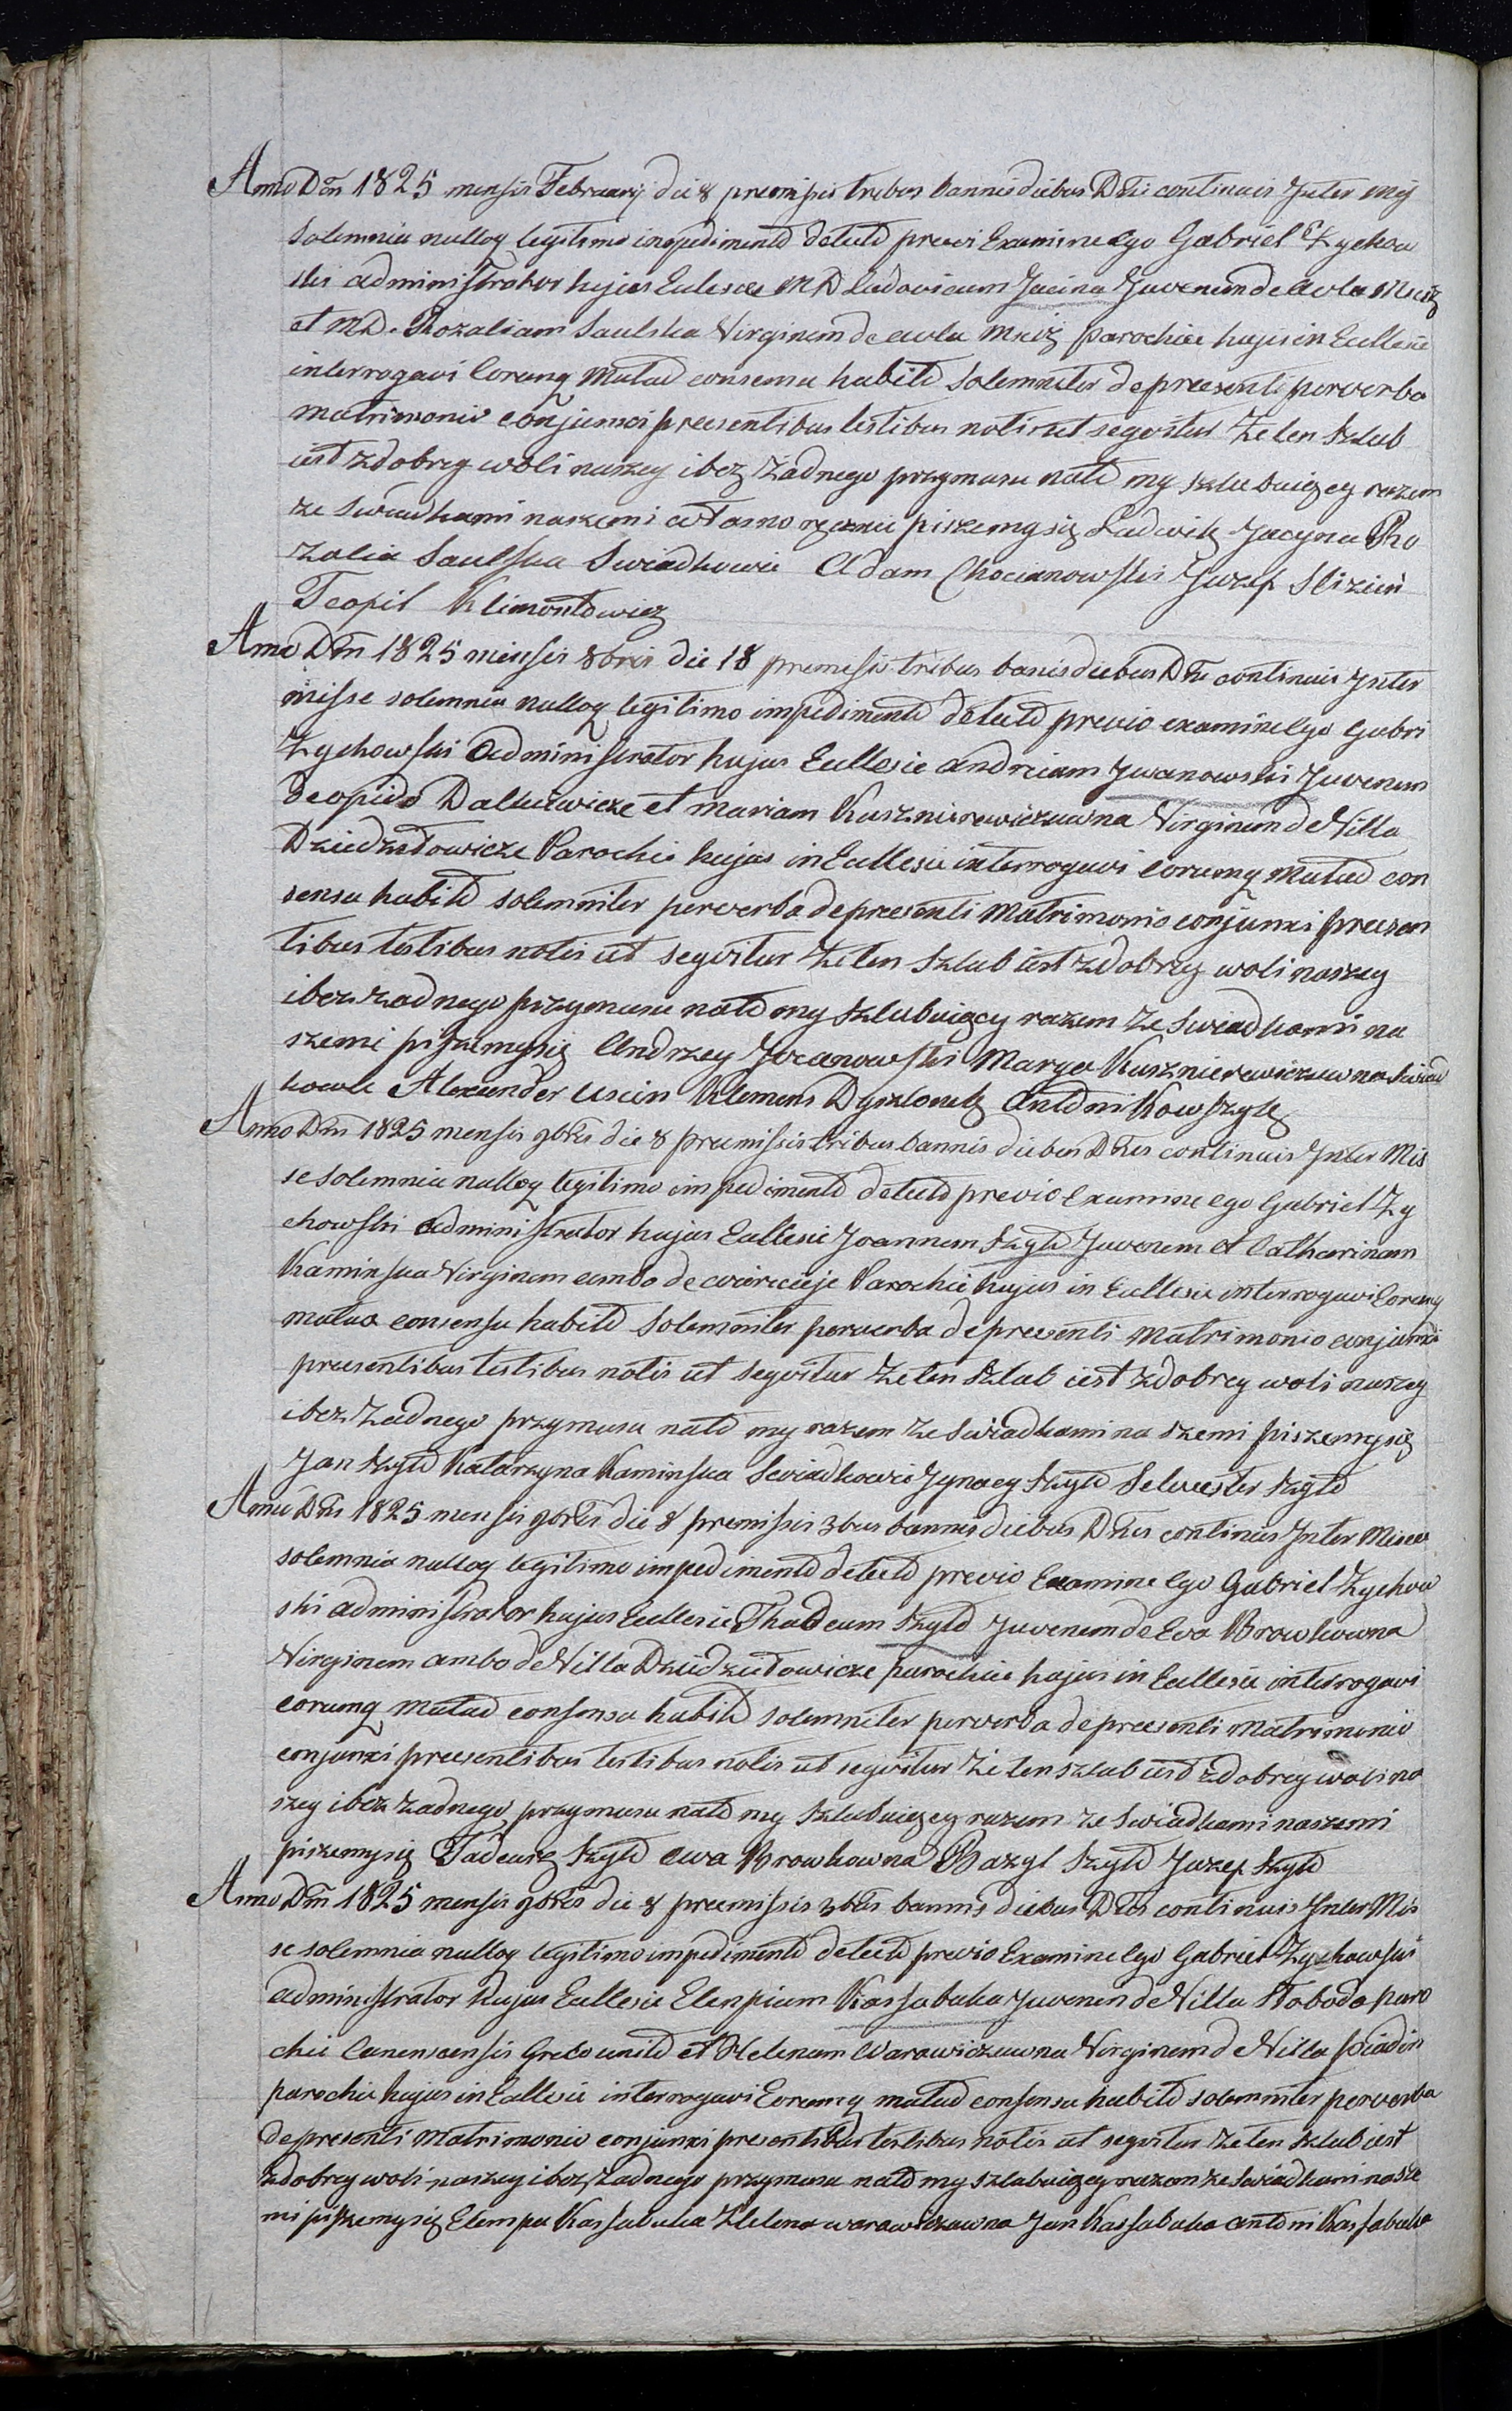 Anno Dni 1825 mensis February die 8 premissis tribus bannis diebus Dnis continuis Inter Mis
solemnia nulloq legitimo impedimento detecto previ Examine ego Gabriel Zychow
ski administrator hujus Eclesiae MD Ludovicum Jacina Juvenem de Aula
et MD. Rozaliam Saulska Virginem de aula parochiae hujus in Ecclesie
interrogavi Eorumq Mutuo consensu habito solemniter de presenti per verba
matrimonio conjunxi presentibus testibus notis ut segvitur Że ten Szlub
iest zdobrey woli naszey ibez żadnego przymusu nato my szlubuiącey razem
ze swiadkami naszemi własno ręcznie piszemysię Ludwik Jacyna Ro
zalia Saulska Swiadkowie Adam Chocianowski Juzef Slizień
Teofil Klimontowicz
Anno Dni 1825 mensis 8bris die 18 premissis tribus banis diebus Dni continuis Inter
misse solemnia nulloq legitimo impedimento detecto previo examine Ego Gabri
Zychowski Administrator hujus Ecclesie Andream Jwanowski Juvenem
de opido Dalkowicze et Mariam Kusznierewiczuwna Virginem de Villa
Dziedziłowicze Parochie hujus in Ecclesie interrogavi Eorumq Mutuo con
sensu habito solemniter per verba de preesenti Matrimonio conjunxi preesen
tibus testibus notis ut segvitur że ten szlub iest zdobrey woli naszey
ibez zadnego przymusu nato my szlubuiący razem ze swiadkami na
szemi piszemysię Andrzey Jwanowski Marya Kusznierewiczuwna Swiad
kowie Alexander Klemens Antoni Kowszyk
Anno Dni 1825 mensis 9bris die 8 preemissis tribus bannis diebus Dnis continuis Inter Mis
se solemnia nulloq legitimo impedimento detecto previo Examine ego Gabriel Zy
chowski administrator hujus Ecclesie Joannem Szyło Juvenem et Catharinam
Kaminska Virginem ambo de Parochie hujus in Ecclesie interrogavi Eorumq
mutuo consensu habito Solemniter per verba de preesenti Matrimonio conjunxi
preesentibus testibus notis ut segvitur że ten szlub iest zdobrey woli naszey
ibez żadnego przymusu nato my razem ze swiadkami na szemi piszemysię
Jan Szyło Katarzyna Kaminska Swiadkowie Jgnacy Szyło Selwester Szyło
Anno Dni 1825 mensis 9bris die 8 premissis 3bus bannis diebus Dnis continuis Inter Misse
solemnia nulloq legitimo impedimento detecto previo Examine Ego Gabriel Zychow
ski administrator hujus Ecclesie Thadeum Szyło Juvenem de Eva Browkowna
Virginem ambo de Villa Dziedziełowicze parochiae hujus in Ecclesie interrogavi
eorumq Mutuo consensu habito solemniter per verba de preesenti Matrimonio
conjunxi preesentibus testibus notis ut segvitur że ten szlub iest zdobrey woli na
szey ibez żadnego przymusu nato my szlubuiącey razem ze swiadkami naszemi
piszemysię Tadeusz Szyło Ewa Browkowna Bazyl Szyło Juzef Szyło
Anno Dni 1825 mensis 9bris die 8 preemissis 3bus bannis diebus Dnis continuis Inter Mis
se solemnia nulloq legitimo impedimento detecto previo Examine Ego Gabriel Zychowski
administrator hujus Ecclesie Elenpium Kassabuka Juvenem de Villa Słoboda paro
chie Greko unito et Helenam Warawiczuwna Virginem de Villa
parochie hujus in Ecclesie interrogavi Eorumq mutuo consensu habito solemniter per verba
de presenti Matrimonio conjunxi presentibus testibus notis ut segvitur że ten szlub iest
zdobrey woli naszey ibez żadnego przymusu nato my szlubuiącey razem ze swiadkami nasze
mi piszemysię Elempu Kassabuka Helena warawiczuwna Jan Kassabuka antoni Kassabuka